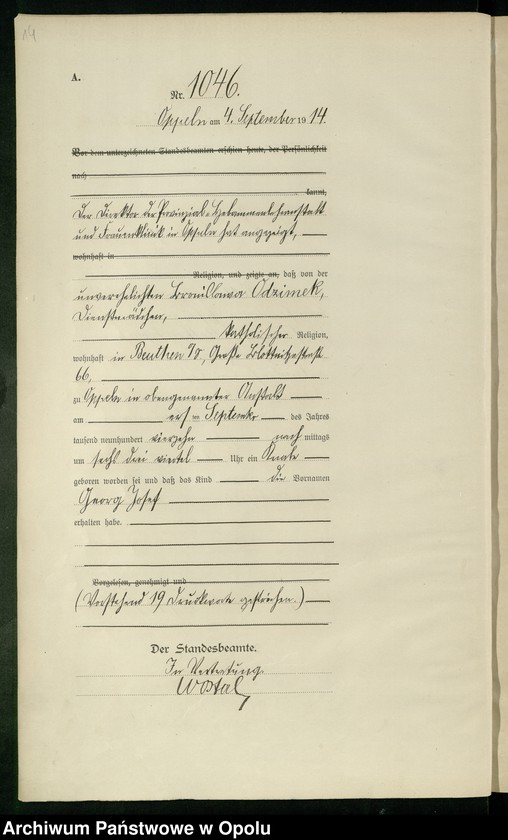 14
A.
Nr. 1046.
Oppeln am 4. September 1914.
Vor dem unterzeichneten Standesbeamten erschien heute, der Persönlichkeit
nach
kannt,
Der Direktor der Provinzial-Hebammenlehranstalt
und Frauenklinik in Oppeln hat angezeigt,
wohnhaft in
Religion, und zeigte an, daß von der
unverehelichten Bronislawa Odzimek,
Dienstmädchen,
katholischer Religion,
wohnhaft in Beuthen O/S, Große Blottnitzastraße
66,
zu Oppeln in obengenannter Anstalt
am ersten September des Jahres
tausend neunhundert vierzehn nach mittags
um sechs drei viertel Uhr ein Knabe
geboren worden sei und daß das Kind die Vornamen
Georg Josef
erhalten habe.
Vorgelesen, genehmigt und
(Vorstehend 19 Druckworte gestrichen.)
Der Standesbeamte.
In Vertretung
Wostal
Archiwum Państwowe w Opolu